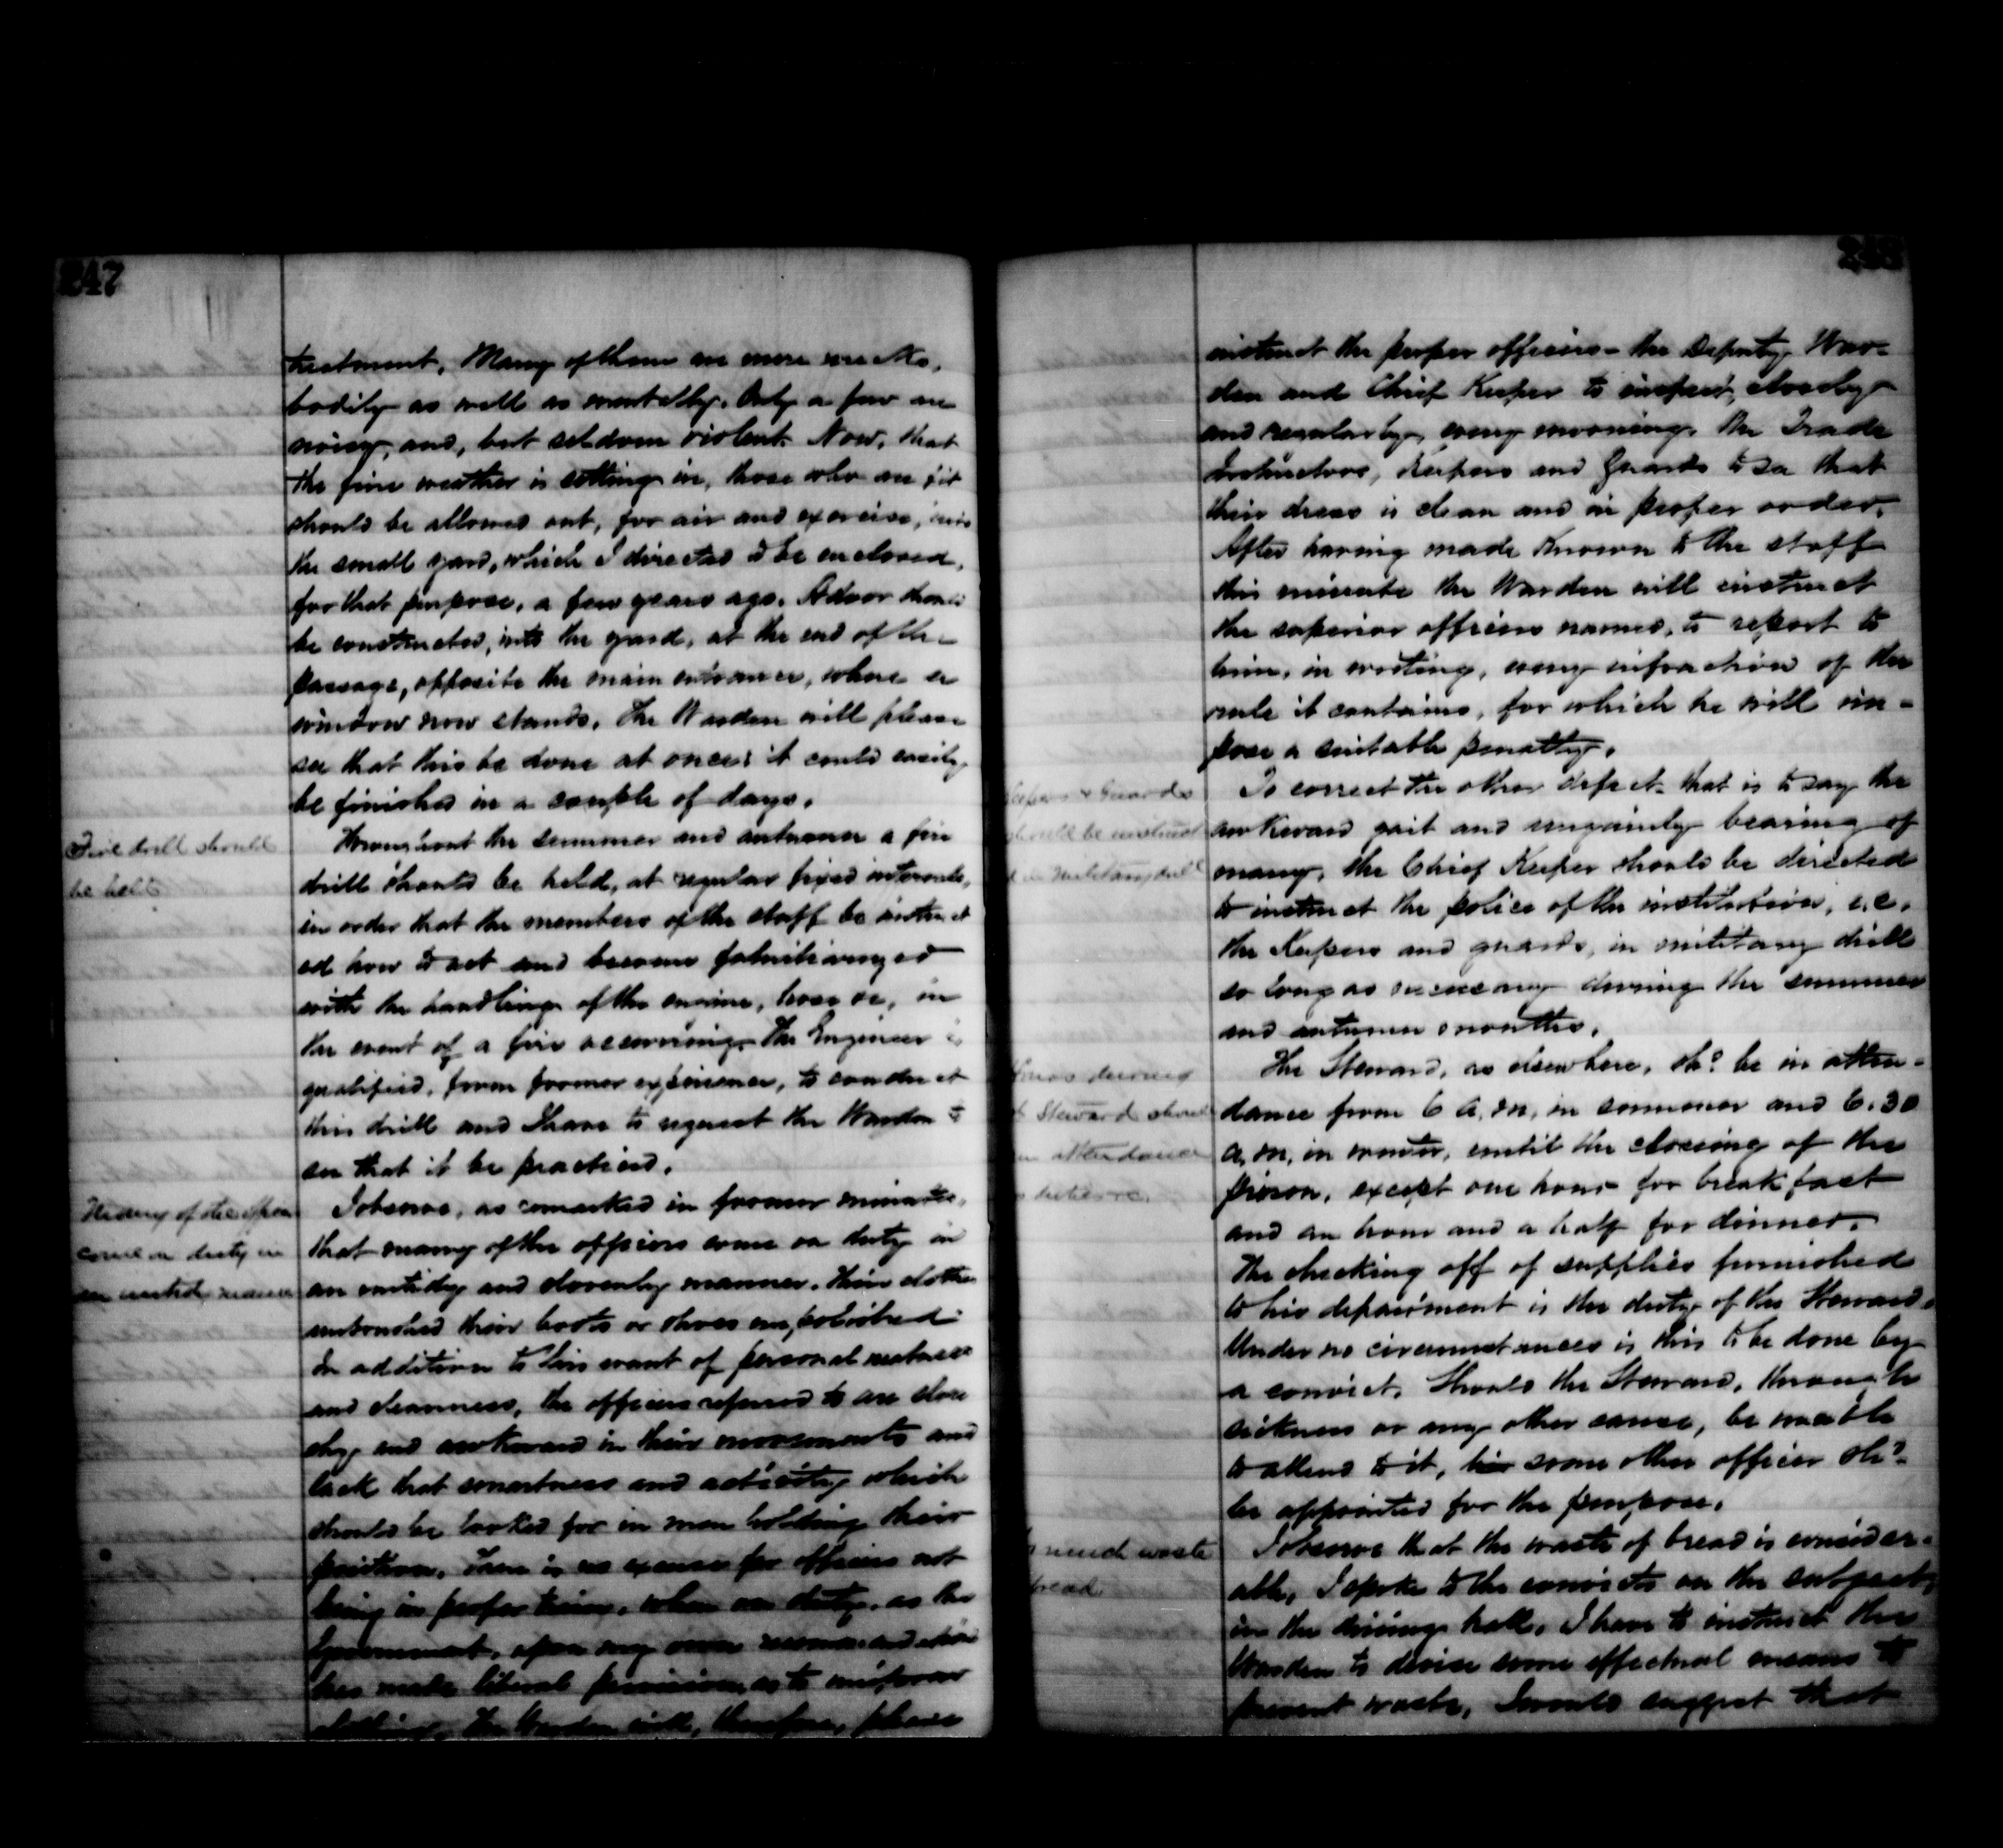 247
treatment. Many of them are mere wrecks,
bodily as well as mentally. Only a few are
noisy, and, but seldom violent. Now, that
the fine weather is setting in, those who are fit
should be allowed out, for air and exercise, into
the small yard, which I directed to be enclosed,
for that purpose, a few years ago. A door should
be constructed, into the yard, at the end of the
passage, opposite the main entrance, where a
window now stands. The Warden will please
see that this be done at once: it could easily
be finished in a couple of days.
Fire drill should
be held
Throughout the summer and autumn a fire
drill should be held, at regular fixed intervals,
in order that the members of the staff be instruct
ed how to act and become
with the handling of the engine, hose &c, in
the event of a fire occurring. The Engineer is
qualified, from former experience, to conduct
this drill and I have to request the Warden to
see that it be practised.
Many of the officers
come on duty in
an untidy manner
I observe, as remarked in former minutes,
that many of the officers come on duty in
an untidy and slovenly manner. Their clothes
unbrushed their boots or shoes unpolished
In addition to this want of personal neatness
and cleanness, the officers referred to are slou
chy and awkward in their movements and
lack that smartness and activity which
should be looked for in men holding their
position. There is no excuse for officers not
being in proper trim, when on duty, as the
Government, upon my own recommendation
has made liberal provision as to uniform
clothing. The Warden will, therefore, please
instruct the proper officers - the Deputy War-
den and Chief Keeper to inspect, closely
and regularly, every morning, the Trade
Instructors, Keepers and Guards to see that
their dress is clean and in proper order.
After having made known to the staff
this minute the Warden will instruct
the superior officers named, to report to
him, in writing, every infraction of the
rule it contains, for which he will im-
pose a suitable penalty.
Keepers & Guards
should be instruct
ed in military drill
To correct the other defect - that is to say the
awkward gait and ungainly bearing of
many, the Chief Keeper should be directed
to instruct the police of the institution, i.e.
the Keepers and guards, in military drill
so long as necessary during the summer
and autumn months.
Hours during
Steward should
attendance
duties &c.
The Steward, as elsewhere, shd be in atten-
dance from 6 a.m. in summer and 6.30
a.m. in winter, until the closing of the
prison, except one hour for breakfast
and an hour and a half for dinner.
The checking off of supplies furnished
to his department is the duty of the Steward.
Under no circumstances is this to be done by
a convict. Should the Steward, through
sickness or any other cause, be unable
to attend to it, some other officer shd
be appointed for the purpose.
much waste
bread
I observe that the waste of bread is consider-
able, I spoke to the convicts on the subject,
in the dining hall. I have to instruct the
Warden to devise some effectual means to
prevent waste, I would suggest that